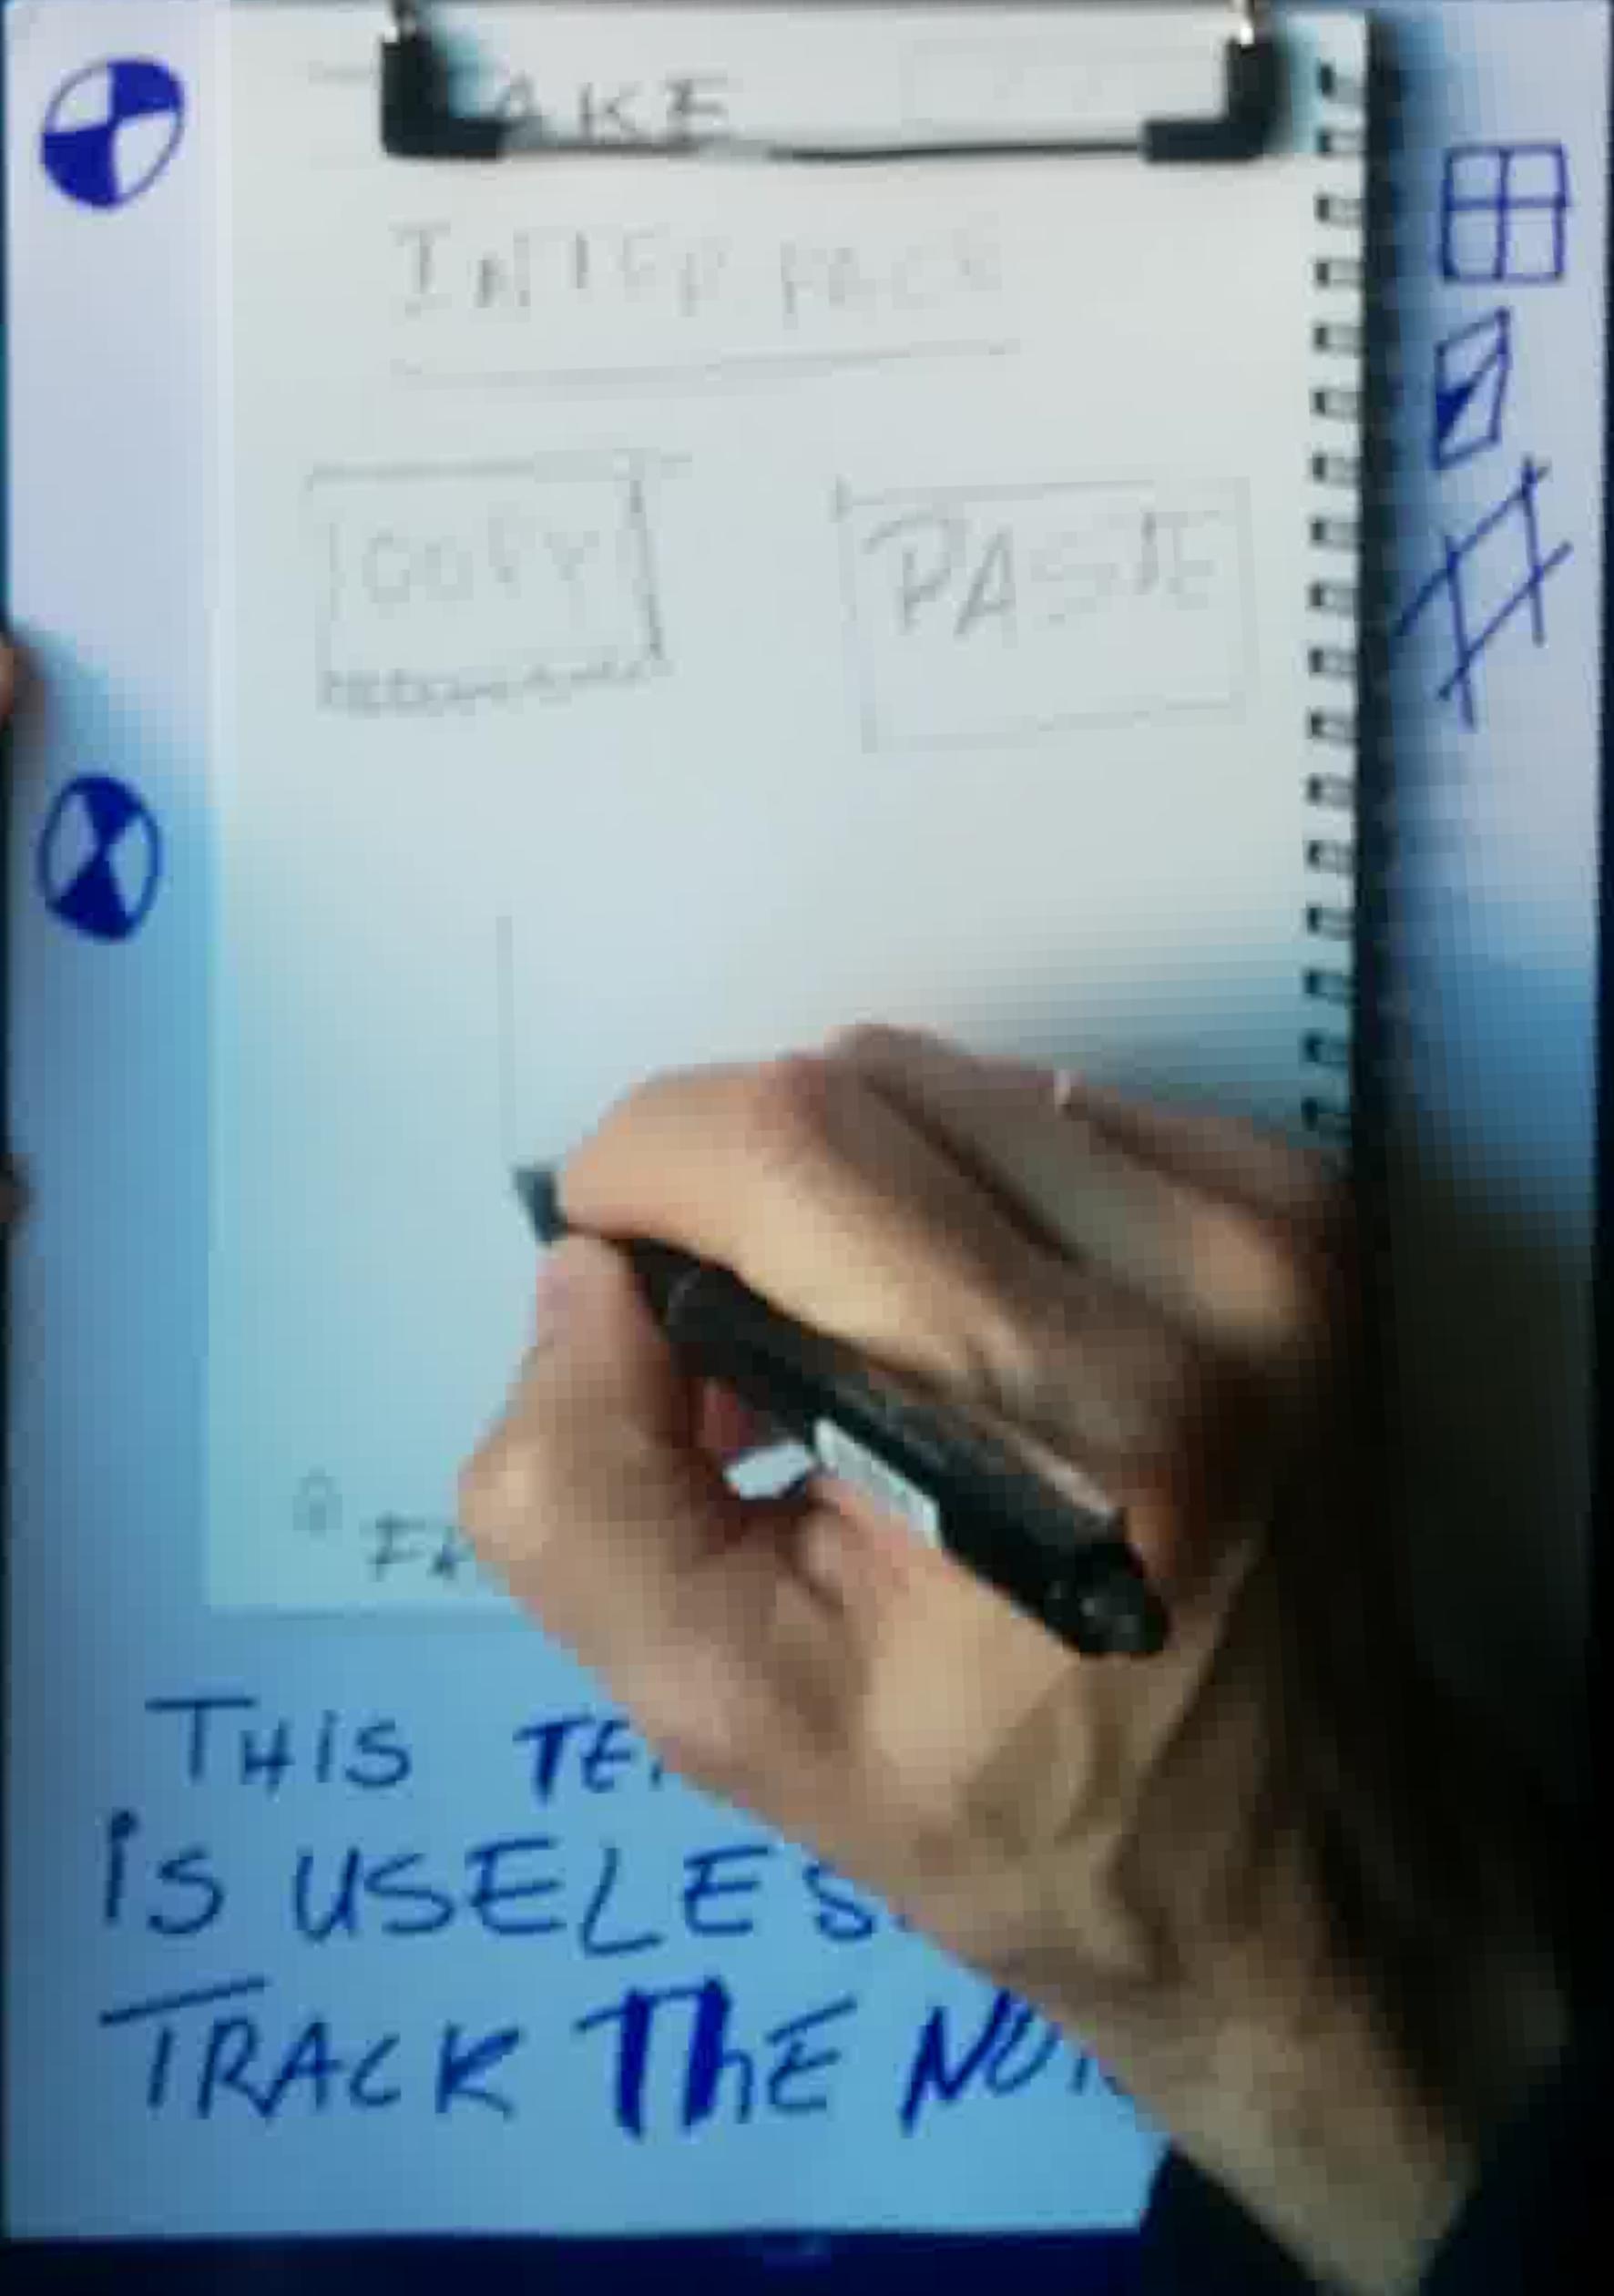 INTERFACE
COPY
PASTE
THIS
iS USELES
TRACK ThE